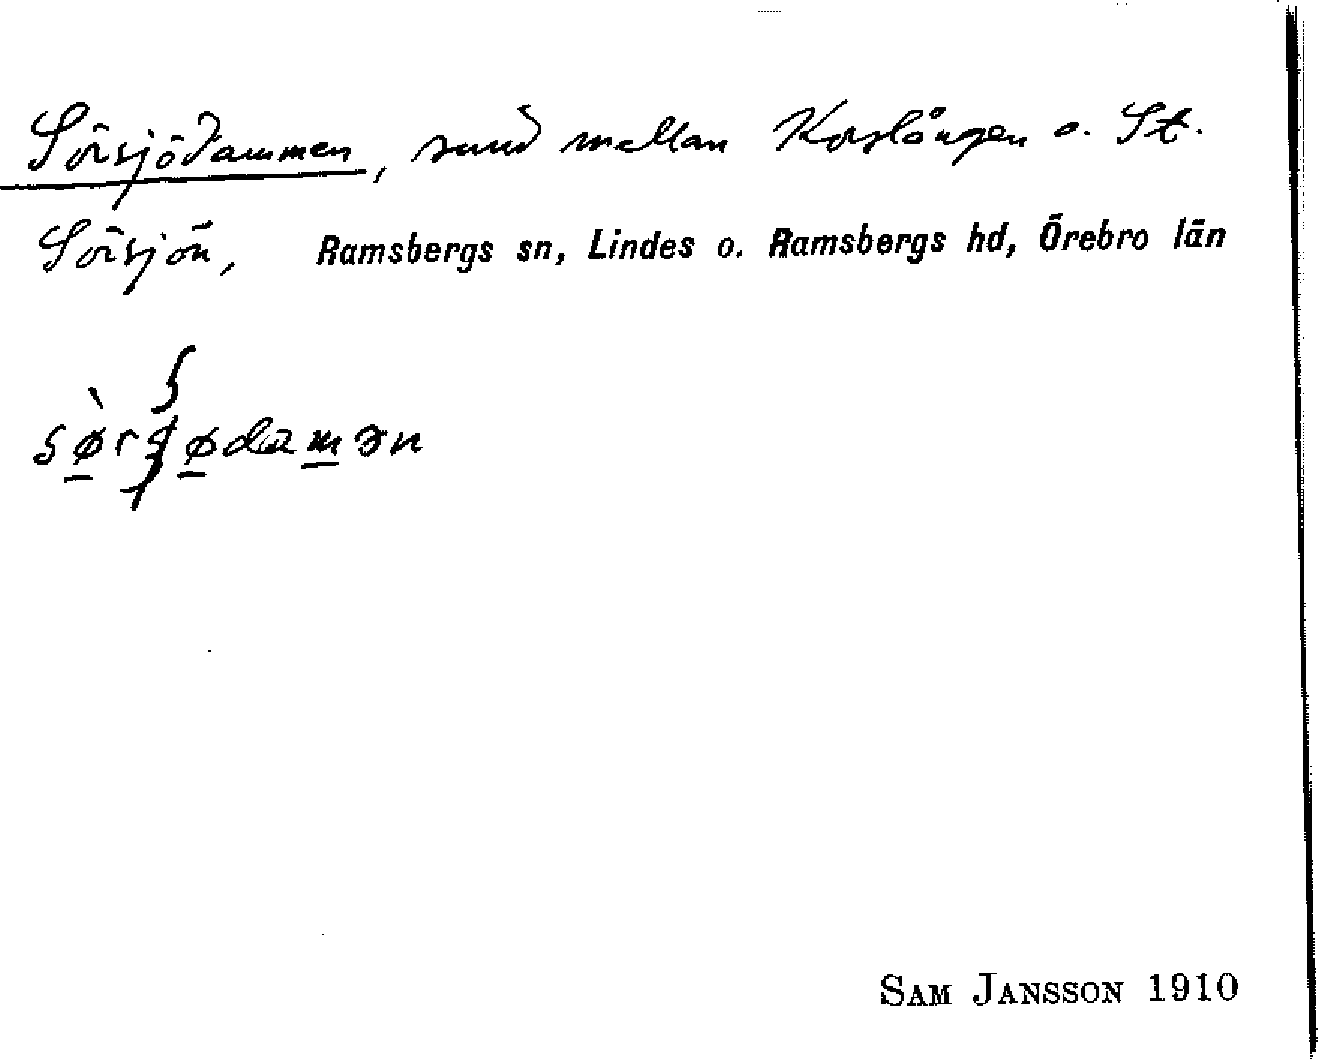 Sörsjödammen, sund mellan Korslången o. St.
Sörsjön, Ramsbergs sn, Lindes o. Ramsbergs hd, Örebro län
SAM JANSSON 1910